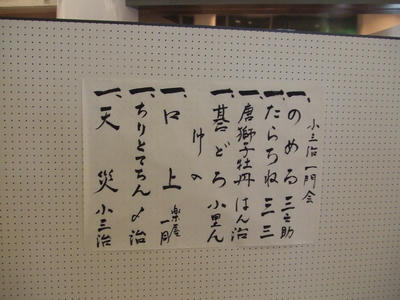 小三治一門会
一、のめる 三之助
一、たらちね 三三
唐獅子牡丹 はん治
一、碁どろ 小里ん
仲入
一、口上 楽屋一同
一、ちりとてちん 〆治
一、天災 小三治